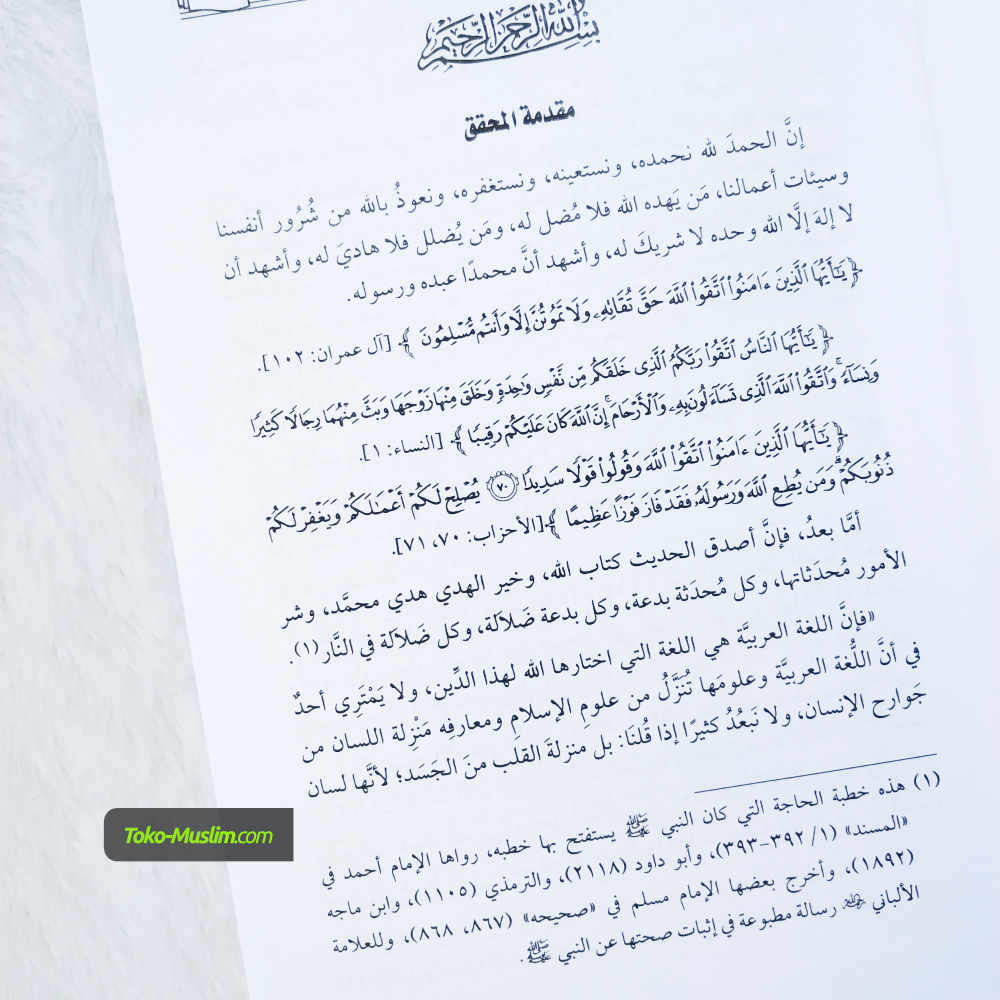 بسم الله الرحمن الرحيم
مقدمة المحقق
إنَّ الحمدَ لله نحمده، ونستعينه، ونستغفره، ونعوذُ بالله من شُرُور أنفسنا
وسيئات أعمالنا، مَن يَهده الله فلا مُضل له، ومَن يُضلل فلا هاديَ له، وأشهد أن
لا إلهَ إلَّا الله وحده لا شريكَ له، وأشهد أنَّ محمدًا عبده ورسوله.
﴿يَٰٓأَيُّهَا ٱلَّذِينَ ءَامَنُوا۟ ٱتَّقُوا۟ ٱللَّهَ حَقَّ تُقَاتِهِۦ وَلَا تَمُوتُنَّ إِلَّا وَأَنتُم مُّسْلِمُونَ﴾ [آل عمران: ١٠٢].
﴿يَٰٓأَيُّهَا ٱلنَّاسُ ٱتَّقُوا۟ رَبَّكُمُ ٱلَّذِى خَلَقَكُم مِّن نَّفْسٍ وَٰحِدَةٍ وَخَلَقَ مِنْهَا زَوْجَهَا وَبَثَّ مِنْهُمَا رِجَالًا كَثِيرًا
وَنِسَآءً ۚ وَٱتَّقُوا۟ ٱللَّهَ ٱلَّذِى تَسَآءَلُونَ بِهِۦ وَٱلْأَرْحَامَ ۚ إِنَّ ٱللَّهَ كَانَ عَلَيْكُمْ رَقِيبًا﴾ [النساء: ١].
﴿يَٰٓأَيُّهَا ٱلَّذِينَ ءَامَنُوا۟ ٱتَّقُوا۟ ٱللَّهَ وَقُولُوا۟ قَوْلًا سَدِيدًا ٧٠ يُصْلِحْ لَكُمْ أَعْمَٰلَكُمْ وَيَغْفِرْ لَكُمْ
ذُنُوبَكُمْ ۗ وَمَن يُطِعِ ٱللَّهَ وَرَسُولَهُۥ فَقَدْ فَازَ فَوْزًا عَظِيمًا﴾ [الأحزاب: ٧٠، ٧١].
أمَّا بعدُ، فإنَّ أصدق الحديث كتاب الله، وخير الهدي هدي محمَّد، وشر
الأمور مُحدَثاتها، وكل مُحدَثة بدعة، وكل بدعة ضَلاَلة، وكل ضَلاَلة في النَّار(١).
«فإنَّ اللغة العربيَّة هي اللغة التي اختارها الله لهذا الدِّين، ولا يَمْتَرِي أحدٌ
في أنَّ اللُّغة العربيَّة وعلومَها تُنَزَّلُ من علومِ الإسلامِ ومعارفِه مَنْزِلة اللسان من
جَوارح الإنسان، ولا نَبعُدُ كثيرًا إذا قُلنَا: بل منزلةَ القلب منَ الجَسَد؛ لأنَّها لسان
(١) هذه خطبة الحاجة التي كان النبي ﷺ يستفتح بها خطبه، رواها الإمام أحمد في
«المسند» (١/ ٣٩٢-٣٩٣)، وأبو داود (٢١١٨)، والترمذي (١١٠٥)، وابن ماجه
(١٨٩٢)، وأخرج بعضها الإمام مسلم في «صحيحه» (٨٦٧، ٨٦٨)، وللعلامة
الألباني رسالة مطبوعة في إثبات صحتها عن النبي ﷺ.
Toko-Muslim.com